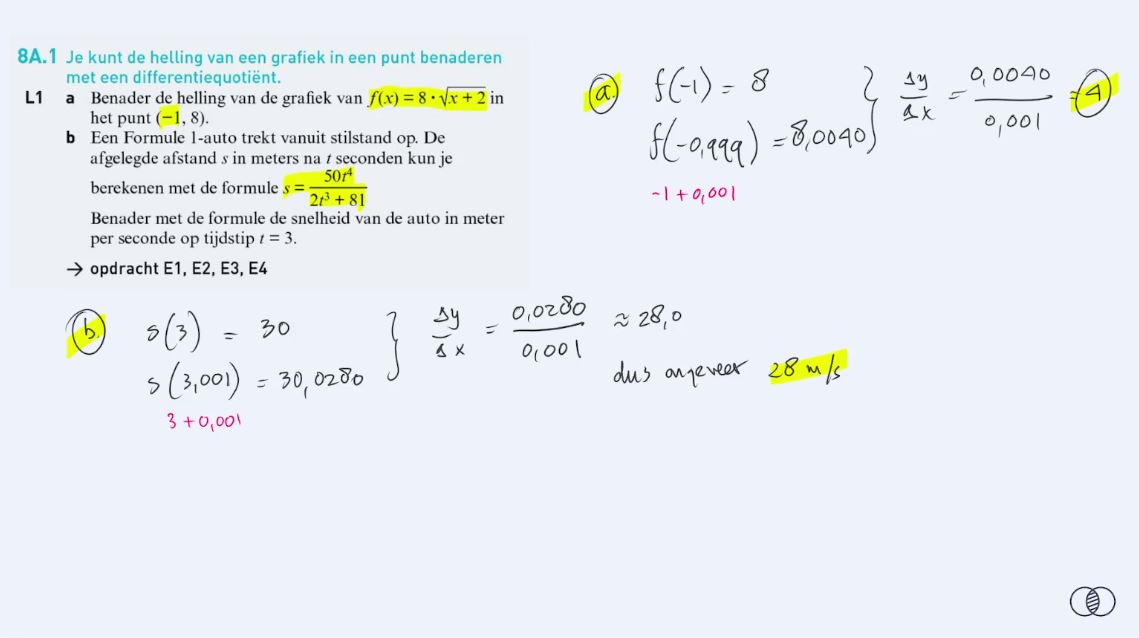 8A.1 Je kunt de helling van een grafiek in een punt benaderen
met een differentiequotiënt.
L1 a Benader de helling van de grafiek van f(x) = 8 · √(x + 2) in
het punt (−1, 8).
b Een Formule 1-auto trekt vanuit stilstand op. De
afgelegde afstand s in meters na t seconden kun je
berekenen met de formule s = 50t⁴ / (2t³ + 81)
Benader met de formule de snelheid van de auto in meter
per seconde op tijdstip t = 3.
→ opdracht E1, E2, E3, E4
a. f(-1) = 8
f(-0,999) = 8,0040
-1 + 0,001
} Δy/Δx = 0,0040/0,001 = 4
b. s(3) = 30
s(3,001) = 30,0280
3 + 0,001
} Δy/Δx = 0,0280/0,001 ≈ 28,0
dus ongeveer 28 m/s